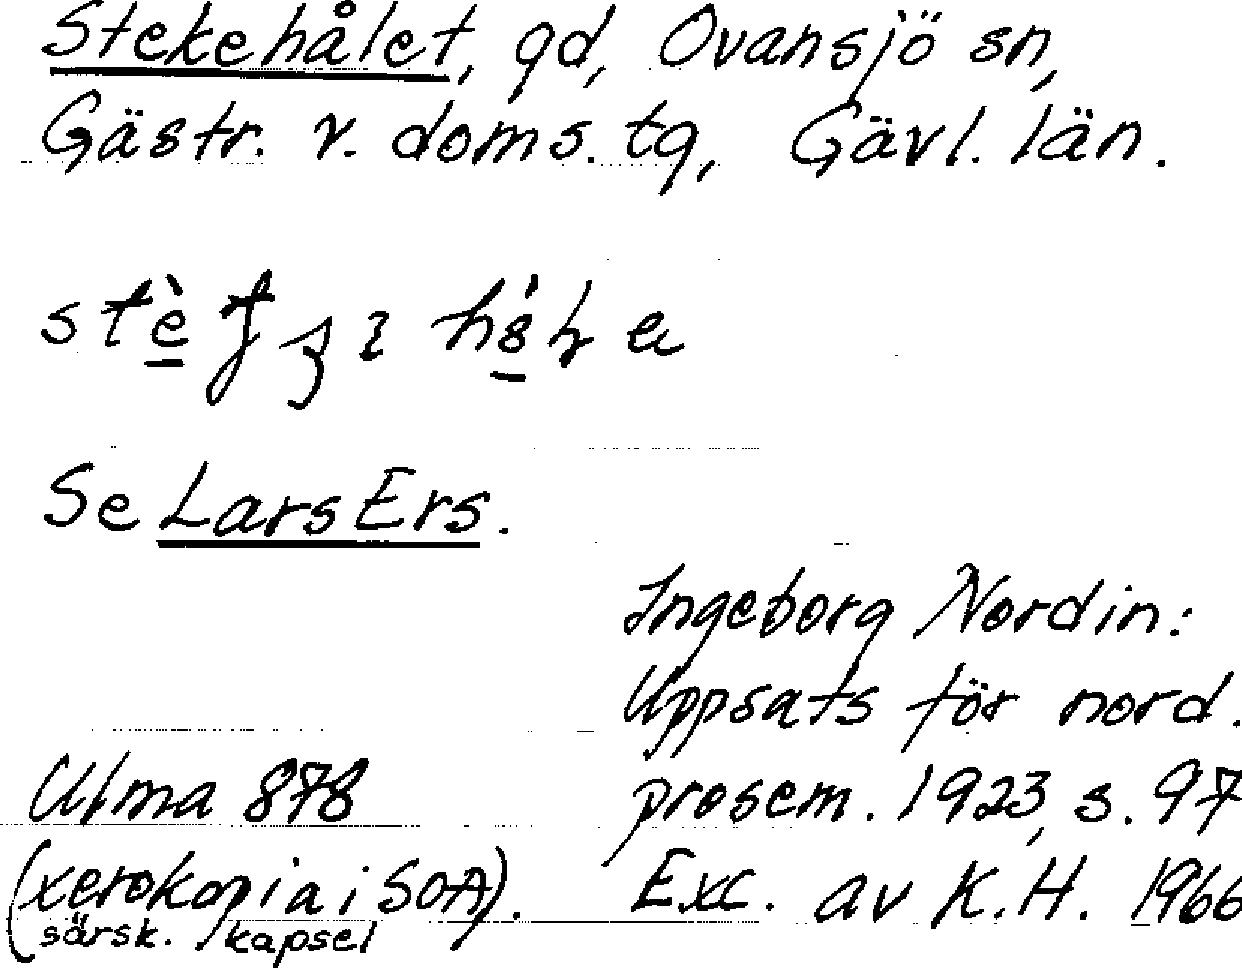 Stekehålet, gd, Ovansjö sn,
Gästr. v. doms. tg, Gävl. län.
Se Lars Ers.
Ingeborg Nordin:
Uppsats för nord.
prosem. 1923, s. 97
Ulma 878
(xerokopia i SOA).
särsk. kapsel
Exc. av K.H. 1966